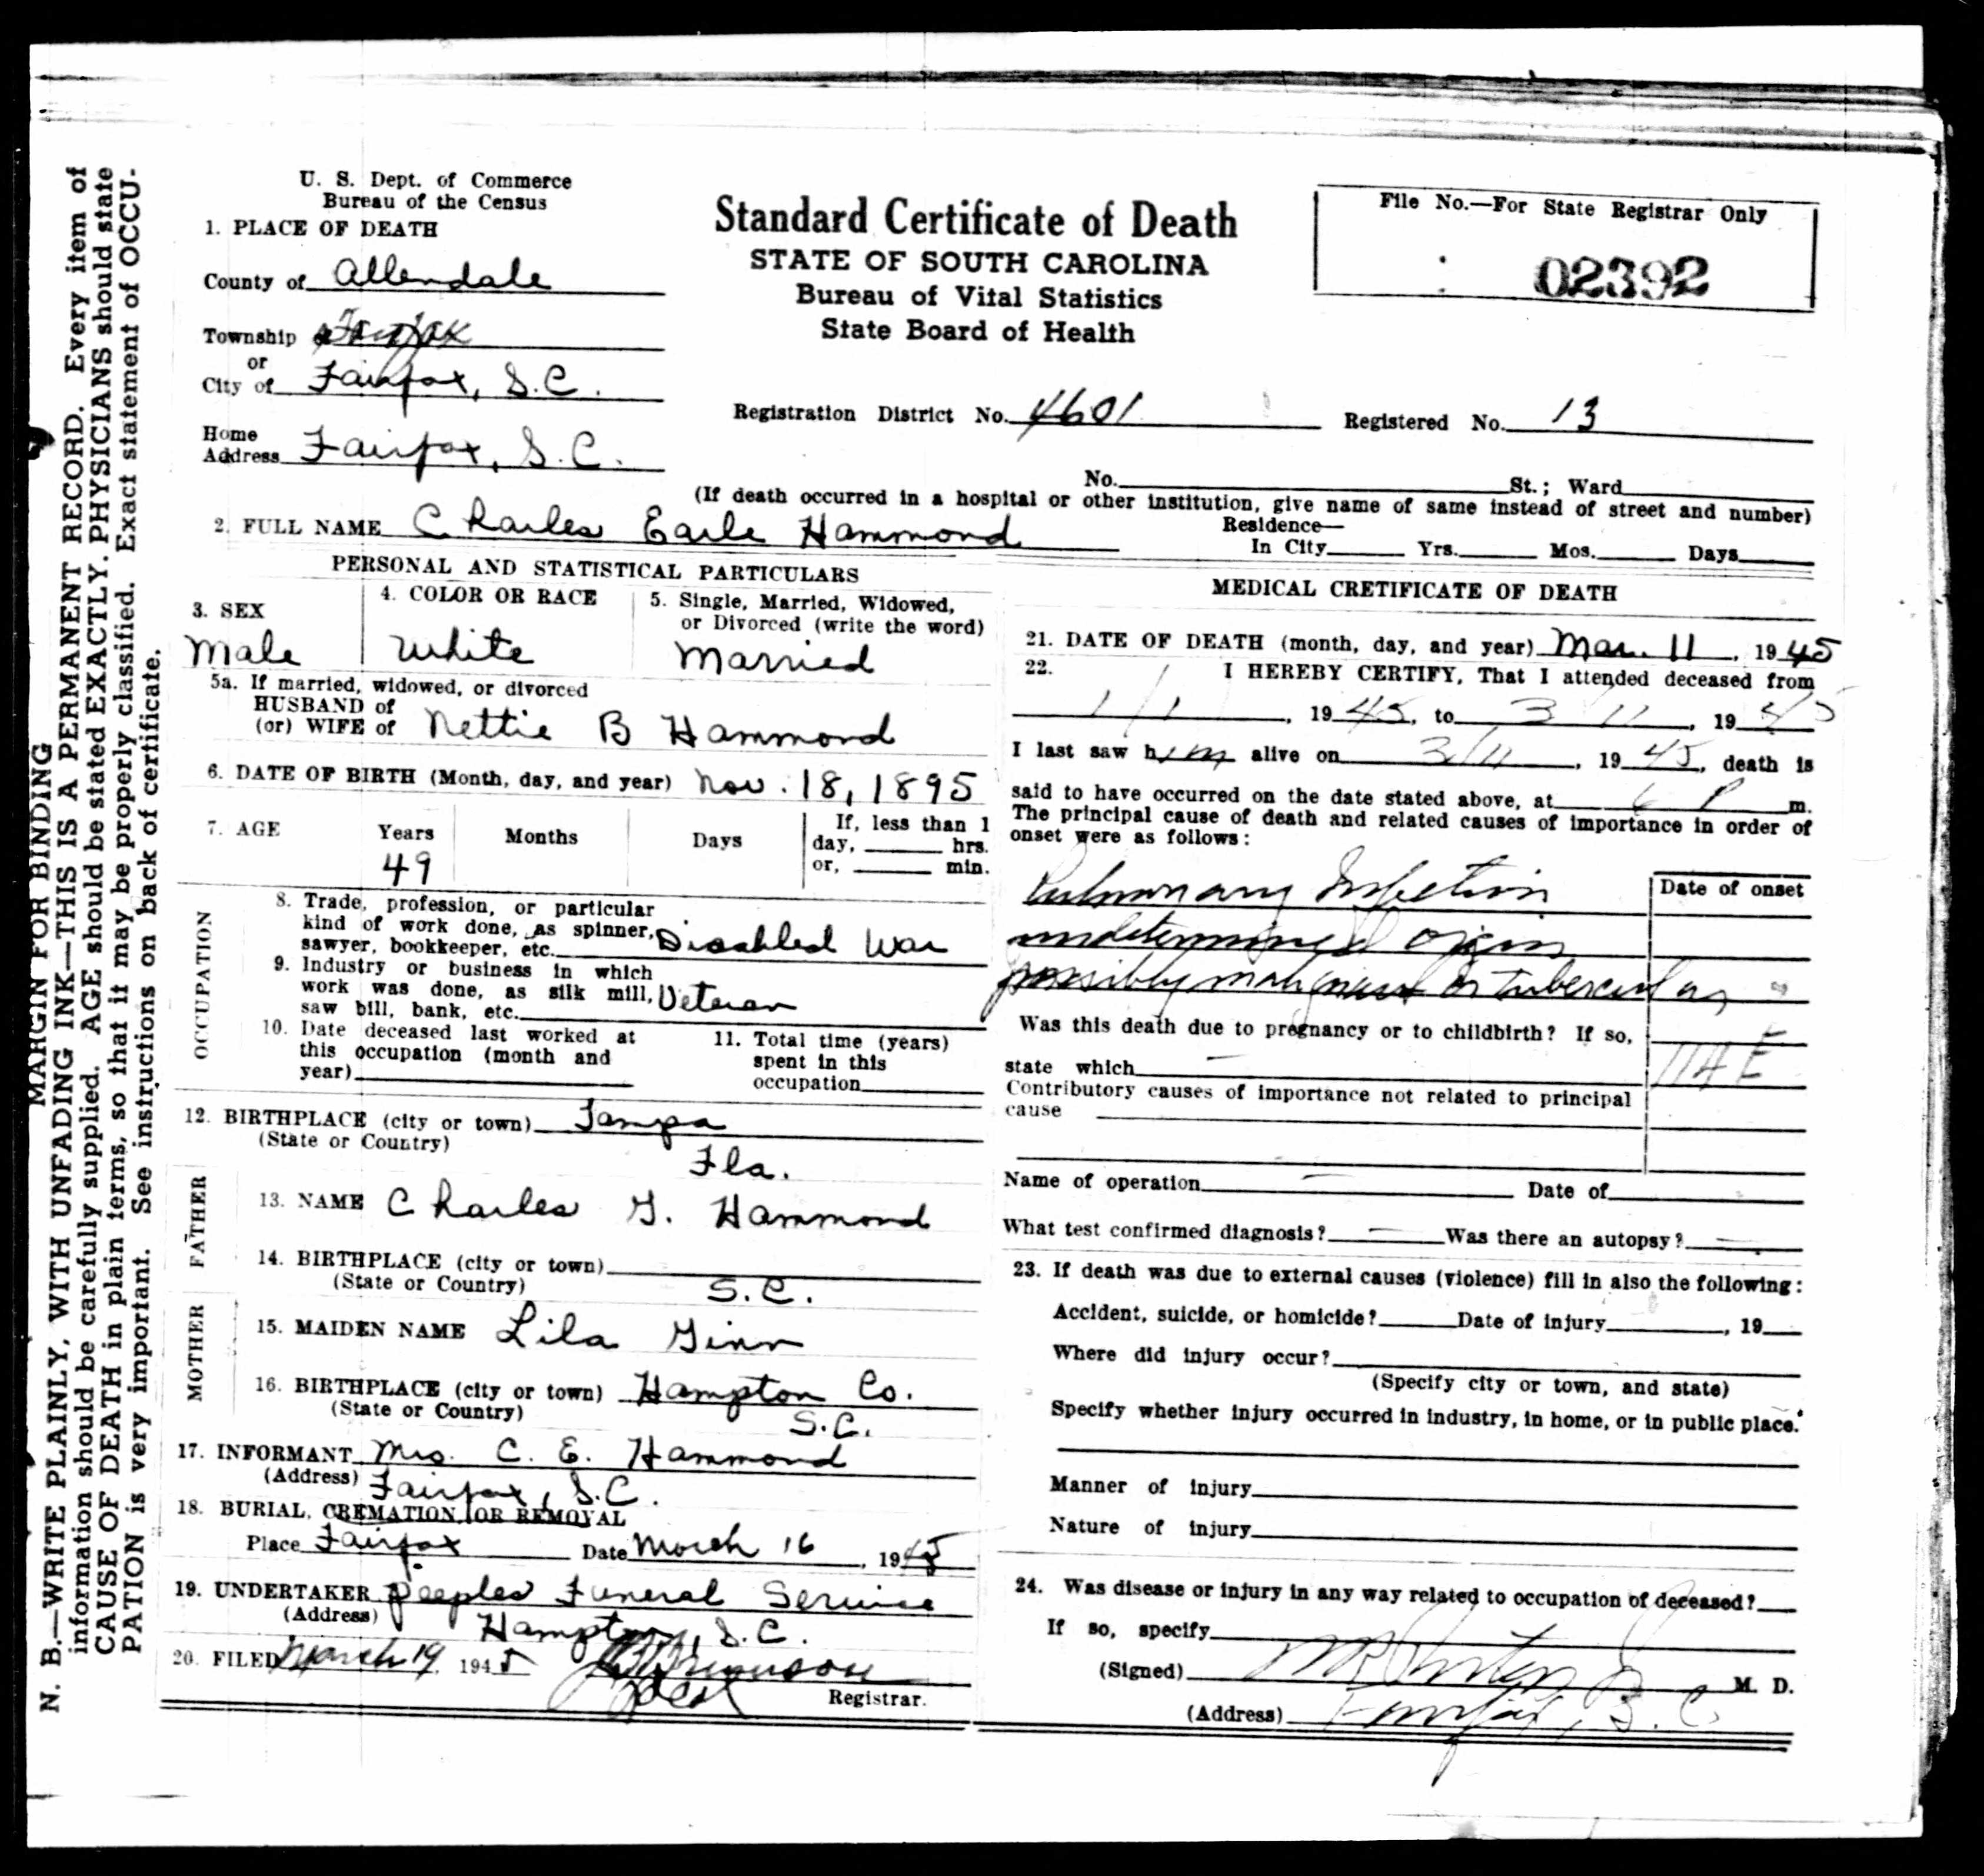 U. S. Dept. of Commerce
Bureau of the Census
1. PLACE OF DEATH
County of Allendale
Township Fairfax
or
City of Fairfax, S.C.
Home
Address Fairfax, S.C.
Standard Certificate of Death
STATE OF SOUTH CAROLINA
Bureau of Vital Statistics
State Board of Health
File No.—For State Registrar Only
02392
Registration District No. 4601 Registered No. 13
No. St.; Ward
(If death occurred in a hospital or other institution, give name of same instead of street and number)
2. FULL NAME Charles Earle Hammond
Residence—
In City Yrs. Mos. Days
PERSONAL AND STATISTICAL PARTICULARS
3. SEX
Male
4. COLOR OR RACE
White
5. Single, Married, Widowed,
or Divorced (write the word)
Married
5a. If married, widowed, or divorced
HUSBAND of
(or) WIFE of Nettie B Hammond
6. DATE OF BIRTH (Month, day, and year) Nov. 18, 1895
7. AGE Years Months Days
49
If, less than 1
day, hrs.
or, min.
OCCUPATION
8. Trade, profession, or particular
kind of work done, as spinner,
sawyer, bookkeeper, etc. Disabled War
9. Industry or business in which
work was done, as silk mill,
saw bill, bank, etc. Veteran
10. Date deceased last worked at
this occupation (month and
year)
11. Total time (years)
spent in this
occupation
12. BIRTHPLACE (city or town) Tampa
(State or Country) Fla.
FATHER
13. NAME Charles G. Hammond
14. BIRTHPLACE (city or town)
(State or Country) S.C.
MOTHER
15. MAIDEN NAME Lila Ginn
16. BIRTHPLACE (city or town) Hampton Co.
(State or Country) S.C.
17. INFORMANT Mrs. C. E. Hammond
(Address) Fairfax, S.C.
18. BURIAL, CREMATION, OR REMOVAL
Place Fairfax Date March 16, 1945
19. UNDERTAKER Peeples Funeral Service
(Address) Hampton, S.C.
20. FILED March 19 1945
Registrar.
MEDICAL CRETIFICATE OF DEATH
21. DATE OF DEATH (month, day, and year) Mar. 11, 1945
22. I HEREBY CERTIFY, That I attended deceased from
1/1, 1945, to 3/11, 1945
I last saw him alive on 3/11, 1945, death is
said to have occurred on the date stated above, at 6 P m.
The principal cause of death and related causes of importance in order of
onset were as follows:
Date of onset
Pulmonary Infection
undetermined origin
possibly malignant or tuberculous
Was this death due to pregnancy or to childbirth? If so,
state which —
114 E
Contributory causes of importance not related to principal
cause
Name of operation — Date of
What test confirmed diagnosis? — Was there an autopsy? —
23. If death was due to external causes (violence) fill in also the following:
Accident, suicide, or homicide? Date of injury, 19
Where did injury occur?
(Specify city or town, and state)
Specify whether injury occurred in industry, in home, or in public place.
Manner of injury
Nature of injury
24. Was disease or injury in any way related to occupation of deceased?
If so, specify
(Signed) M. D.
(Address) Fairfax, S. C.
MARGIN FOR BINDING
N. B.—WRITE PLAINLY, WITH UNFADING INK—THIS IS A PERMANENT RECORD. Every item of
information should be carefully supplied. AGE should be stated EXACTLY. PHYSICIANS should state
CAUSE OF DEATH in plain terms, so that it may be properly classified. Exact statement of OCCU-
PATION is very important. See instructions on back of certificate.